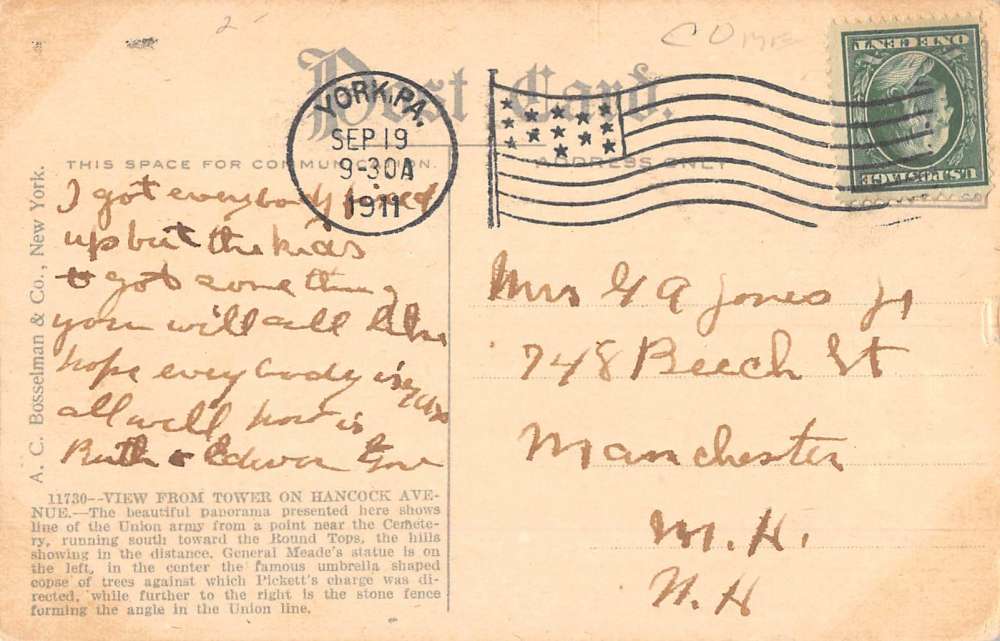 2
Post Card.
THIS SPACE FOR COMMUNICATION.
ADDRESS ONLY
YORK, PA.
SEP 19
9-30A
1911
U.S. POSTAGE
ONE CENT
I got everybody fixed
up but the kids
got something
you will all like
hope every body is
all well how is
Ruth & Edwin
Mrs G A Jones Jr
748 Beech St
Manchester
M. H.
N. H
A. C. Bosselman & Co., New York.
11730--VIEW FROM TOWER ON HANCOCK AVE-
NUE.—The beautiful panorama presented here shows
line of the Union army from a point near the Cemete-
ry, running south toward the Round Tops, the hills
showing in the distance. General Meade's statue is on
the left, in the center the famous umbrella shaped
copse of trees against which Pickett's charge was di-
rected, while further to the right is the stone fence
forming the angle in the Union line.